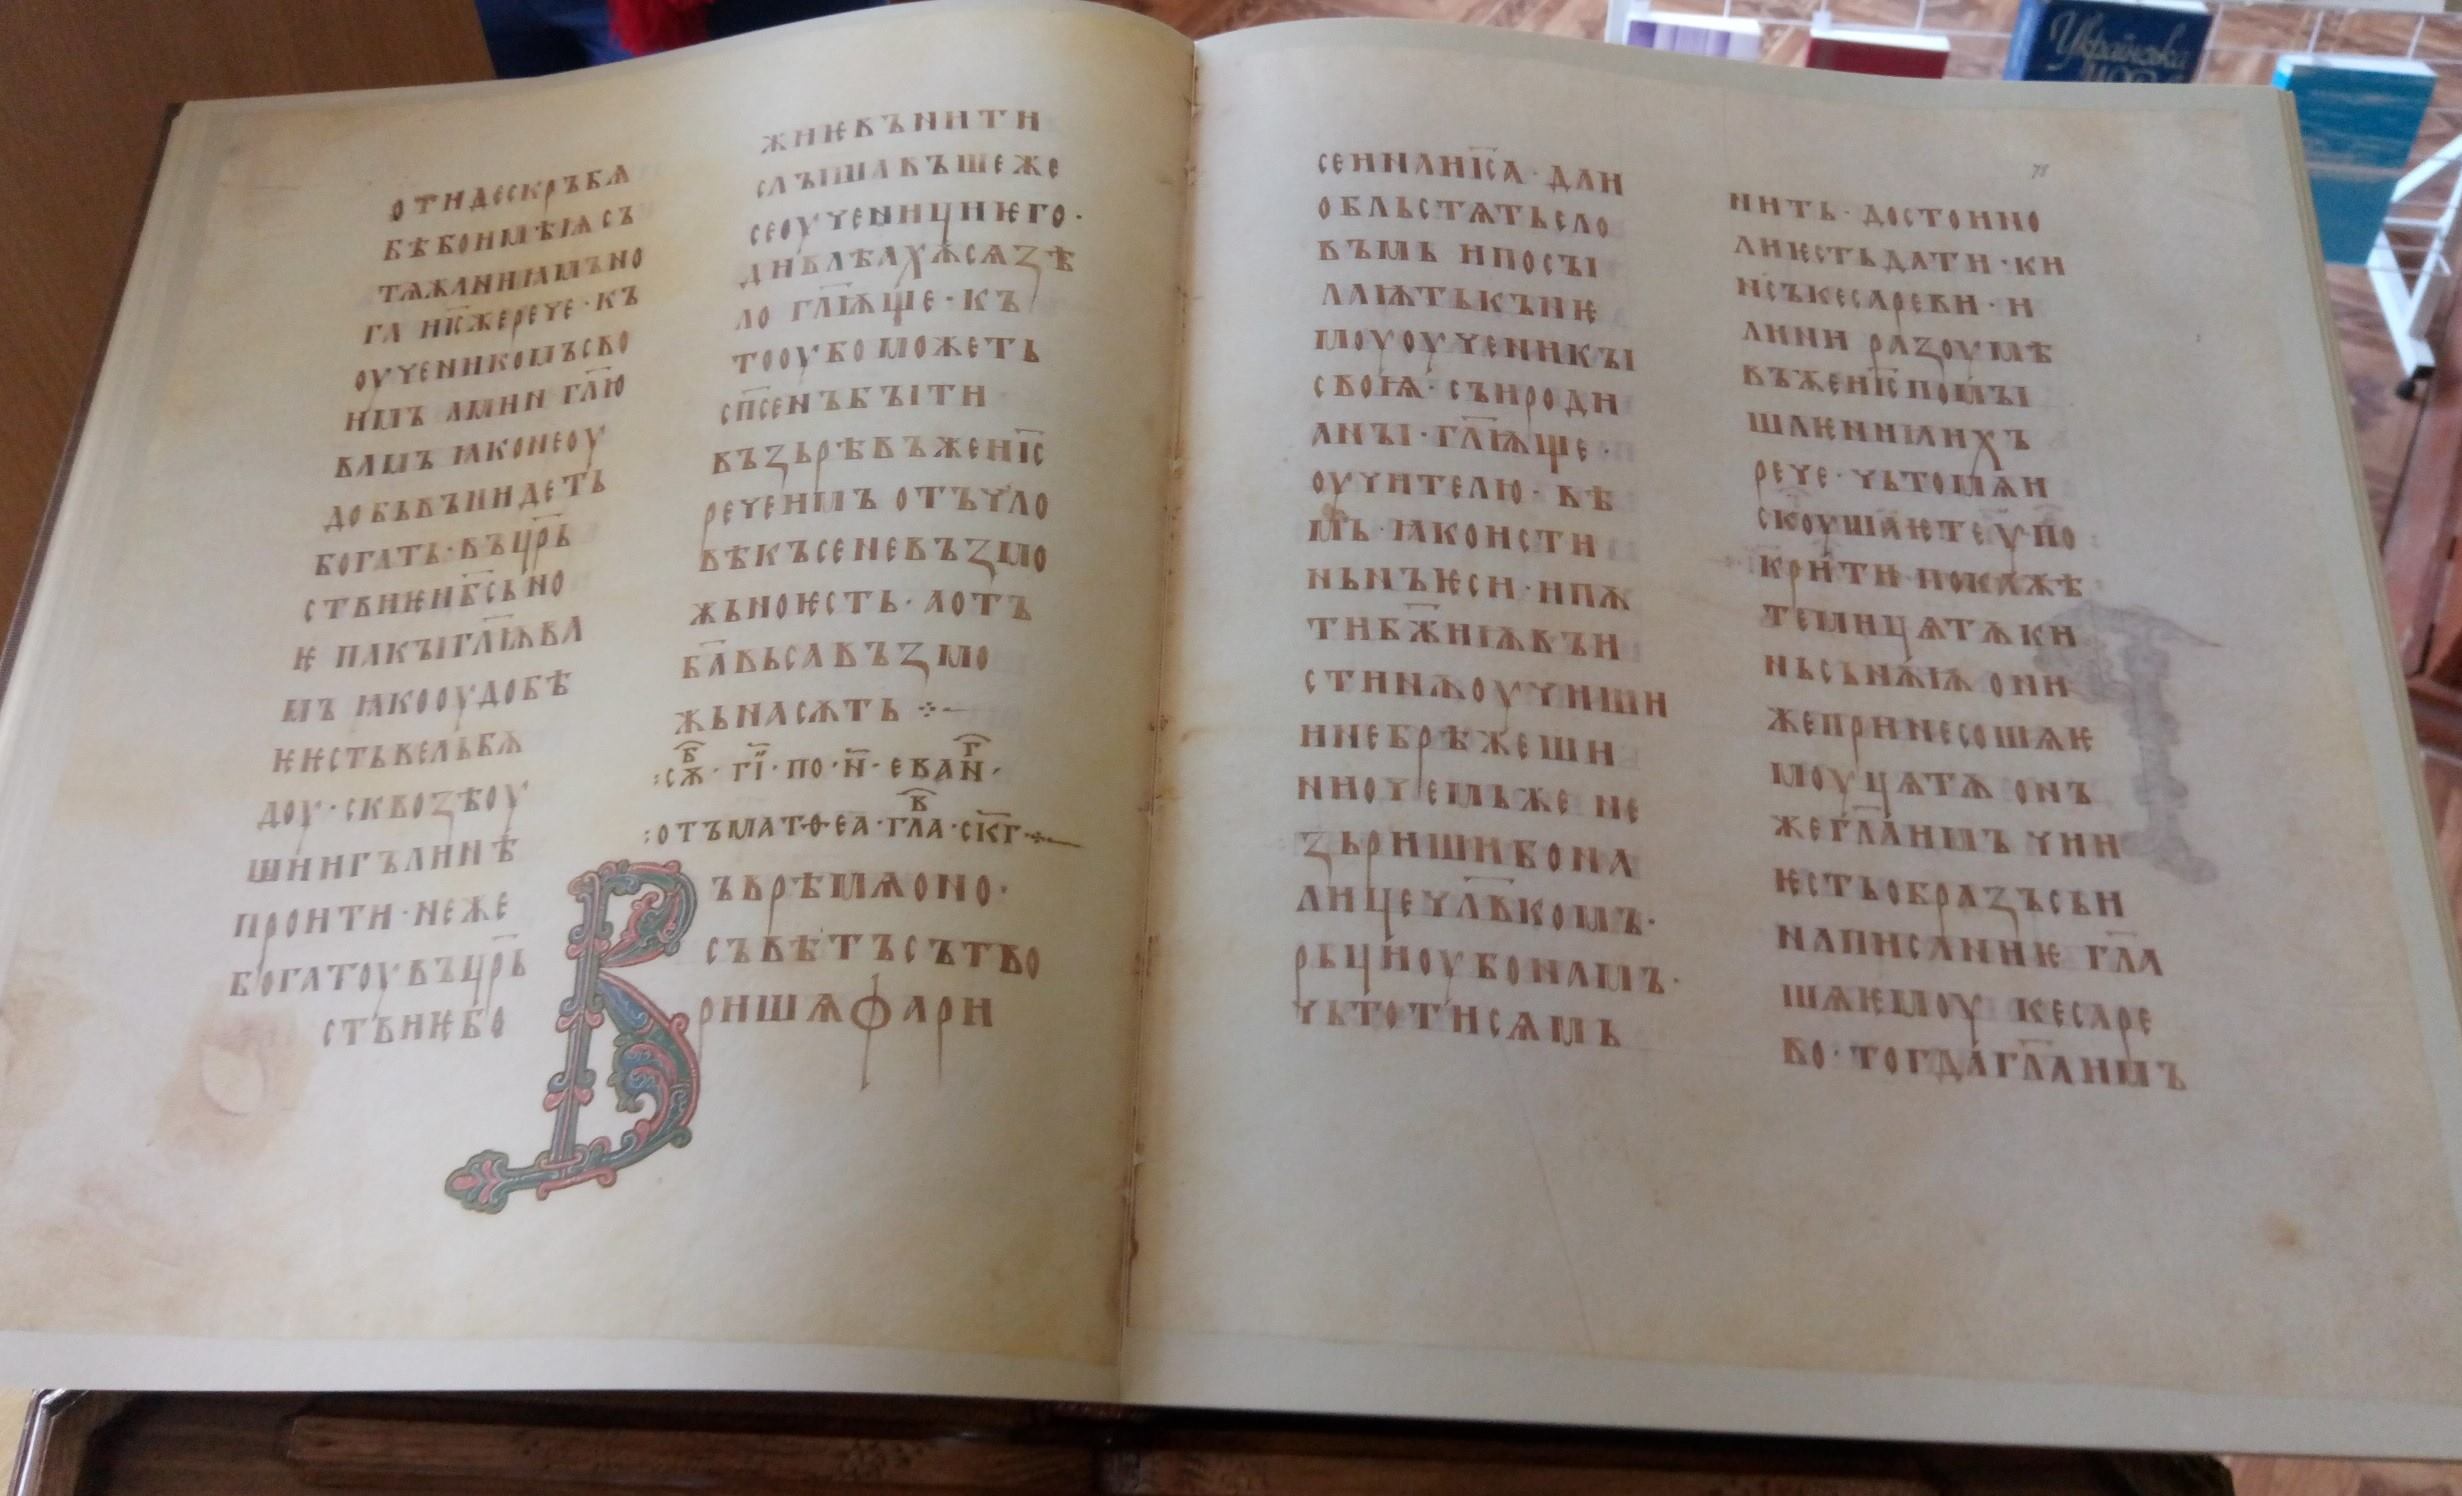 отидескръбѧ
бѣбоимѣıѧсъ
тѧжаниıамъно
га и҃сжерече · къ
оученикомъсво
имъ аминн гл҃ю
вамъ ıаконеоу
добьвънидеть
богать · въцр҃ь
ствиѥнб҃сьно
ѥ пакыıгл҃ıѫва
мъ ıакооудобѣ
ѥѥстьвельбѫ
доу · сквозѣоу
шиигълинѣ
проити · неже
богатоувъцр҃ь
ствиѥбо
жиѥвънити
слъıшавъшеже
сеоученициѥго ·
дивлѣахѫсѧзѣ
ло гл҃ıѫще · къ
тооубоможеть
сп҃сенъбъıти
възьрѣвъжеиı҃с
речеимъ отъчло
вѣкъсеневъзмо
жьноѥсть · аотъ
ба҃вьсавъзмо
жьнасѫть ⁘
: сѫ҃в · гı҃ · по · н҃ · еваⷢ҇н ·
: отъматѳеа · гла҃в · ск҃г ·
Въврѣмѧоно ·
съвѣтъсътво
ришѧфари
сеинаı҃са · даи
обльстѧтьсло
въмь ипосъı
лаıѫтькънѥ
моуоученикъı
своıѧ · съироди
анъı · гл҃ıѫще ·
оучителю · вѣ
мь · ıакоисти
ньнъѥси · ипѫ
тиб҃жиıѫвъи
стинѫоучиши
инебрѣжеши
ниочемьже не
зьришибона
лицечл҃вкомъ ·
рьциоубонамъ ·
чьтотисѧмь
нить · достоино
лиѥстьдати · ки
нсъкесареви · и
лини разоумѣ
въжеиı҃спомъı
шлѥниıаихъ
рече · чьтомѧи
скоушаѥтеѵпо
крити · покажѣ
темицѧтѫки
ньсьнѫıѫ они
жепринесошѧѥ
моуцѧтѫ онъ
жегл҃аимъ чии
ѥстьобразъсьи
написаниѥ гл҃а
шѧѥмоу кесаре
во · тогдагл҃аимъ
Українська